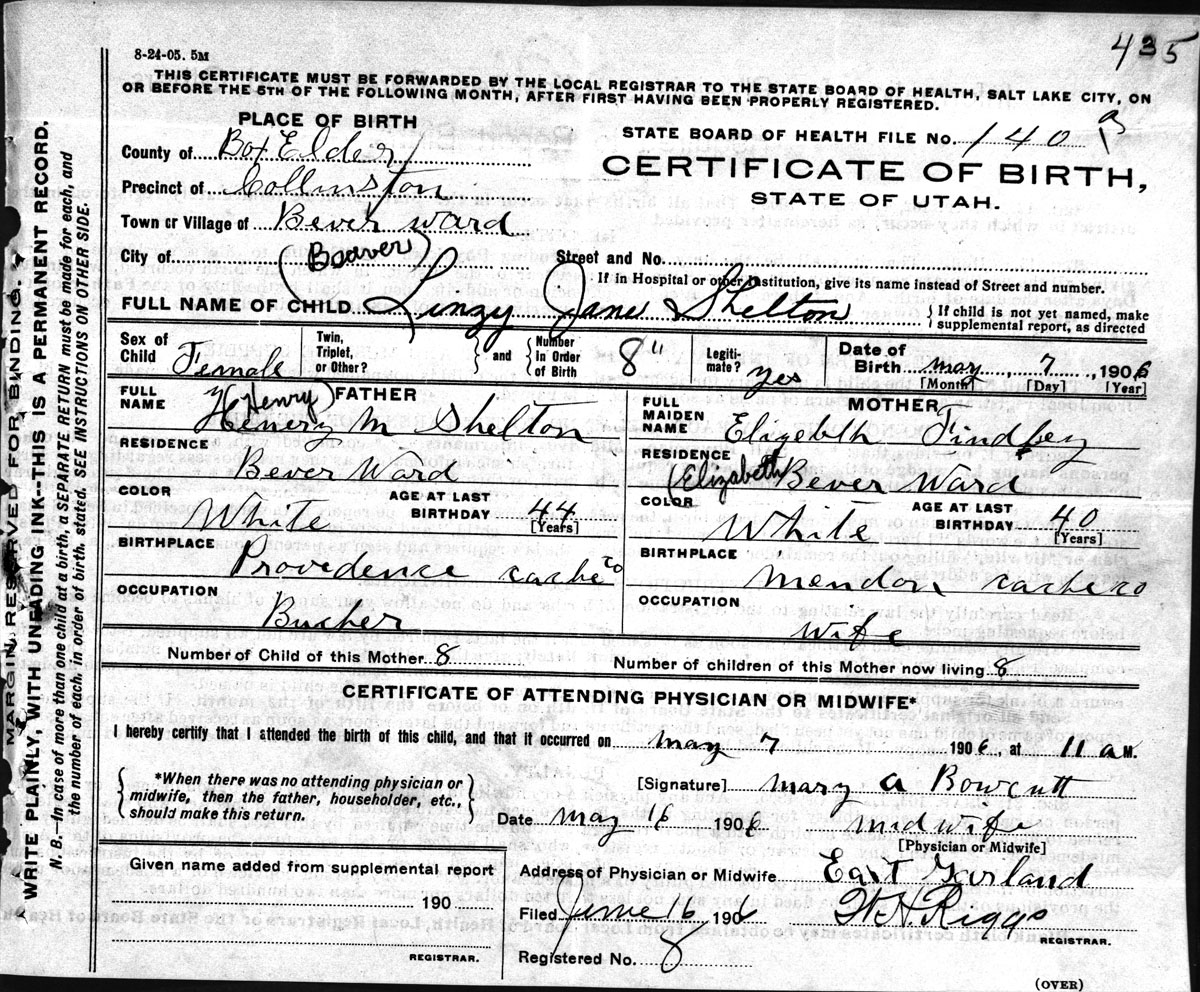 435
8-24-05. 5M
THIS CERTIFICATE MUST BE FORWARDED BY THE LOCAL REGISTRAR TO THE STATE BOARD OF HEALTH, SALT LAKE CITY, ON
OR BEFORE THE 5TH OF THE FOLLOWING MONTH, AFTER FIRST HAVING BEEN PROPERLY REGISTERED.
PLACE OF BIRTH
STATE BOARD OF HEALTH FILE No. 140
County of Box Elder
CERTIFICATE OF BIRTH,
Precinct of Collinston
STATE OF UTAH.
Town or Village of Bever Ward
(Beaver)
City of
Street and No.
If in Hospital or other Institution, give its name instead of Street and number.
FULL NAME OF CHILD Linzy Jane Shelton { If child is not yet named, make
supplemental report, as directed
Sex of Child Female
Twin, Triplet, or Other? } and { Number In Order of Birth 8"
Legiti-mate? yes
Date of Birth may 7, 1906
[Month] [Day] [Year]
FATHER
FULL NAME Henery M Shelton
(Henry)
RESIDENCE
Bever Ward
COLOR White AGE AT LAST BIRTHDAY 44
[Years]
BIRTHPLACE
Providence cache co
OCCUPATION
Bucher
MOTHER
FULL MAIDEN NAME Elizebeth Findley
RESIDENCE
(Elizabeth) Bever Ward
COLOR White AGE AT LAST BIRTHDAY 40
[Years]
BIRTHPLACE
Mendon cache co
OCCUPATION
Wife
Number of Child of this Mother 8 Number of children of this Mother now living 8
CERTIFICATE OF ATTENDING PHYSICIAN OR MIDWIFE*
I hereby certify that I attended the birth of this child, and that it occurred on may 7 1906, at 11 a M.
{ *When there was no attending physician or
midwife, then the father, householder, etc.,
should make this return. }
[Signature] mary a Bowcutt
Date may 16 1906 midwife
[Physician or Midwife]
Given name added from supplemental report
190
REGISTRAR.
Address of Physician or Midwife East Garland
Filed June 16 1906 W. H. Riggs
REGISTRAR.
Registered No. 8
(OVER)
MARGIN RESERVED FOR BINDING.
WRITE PLAINLY, WITH UNFADING INK--THIS IS A PERMANENT RECORD.
N. B.--In case of more than one child at a birth, a SEPARATE RETURN must be made for each, and
the number of each, in order of birth, stated. SEE INSTRUCTIONS ON OTHER SIDE.